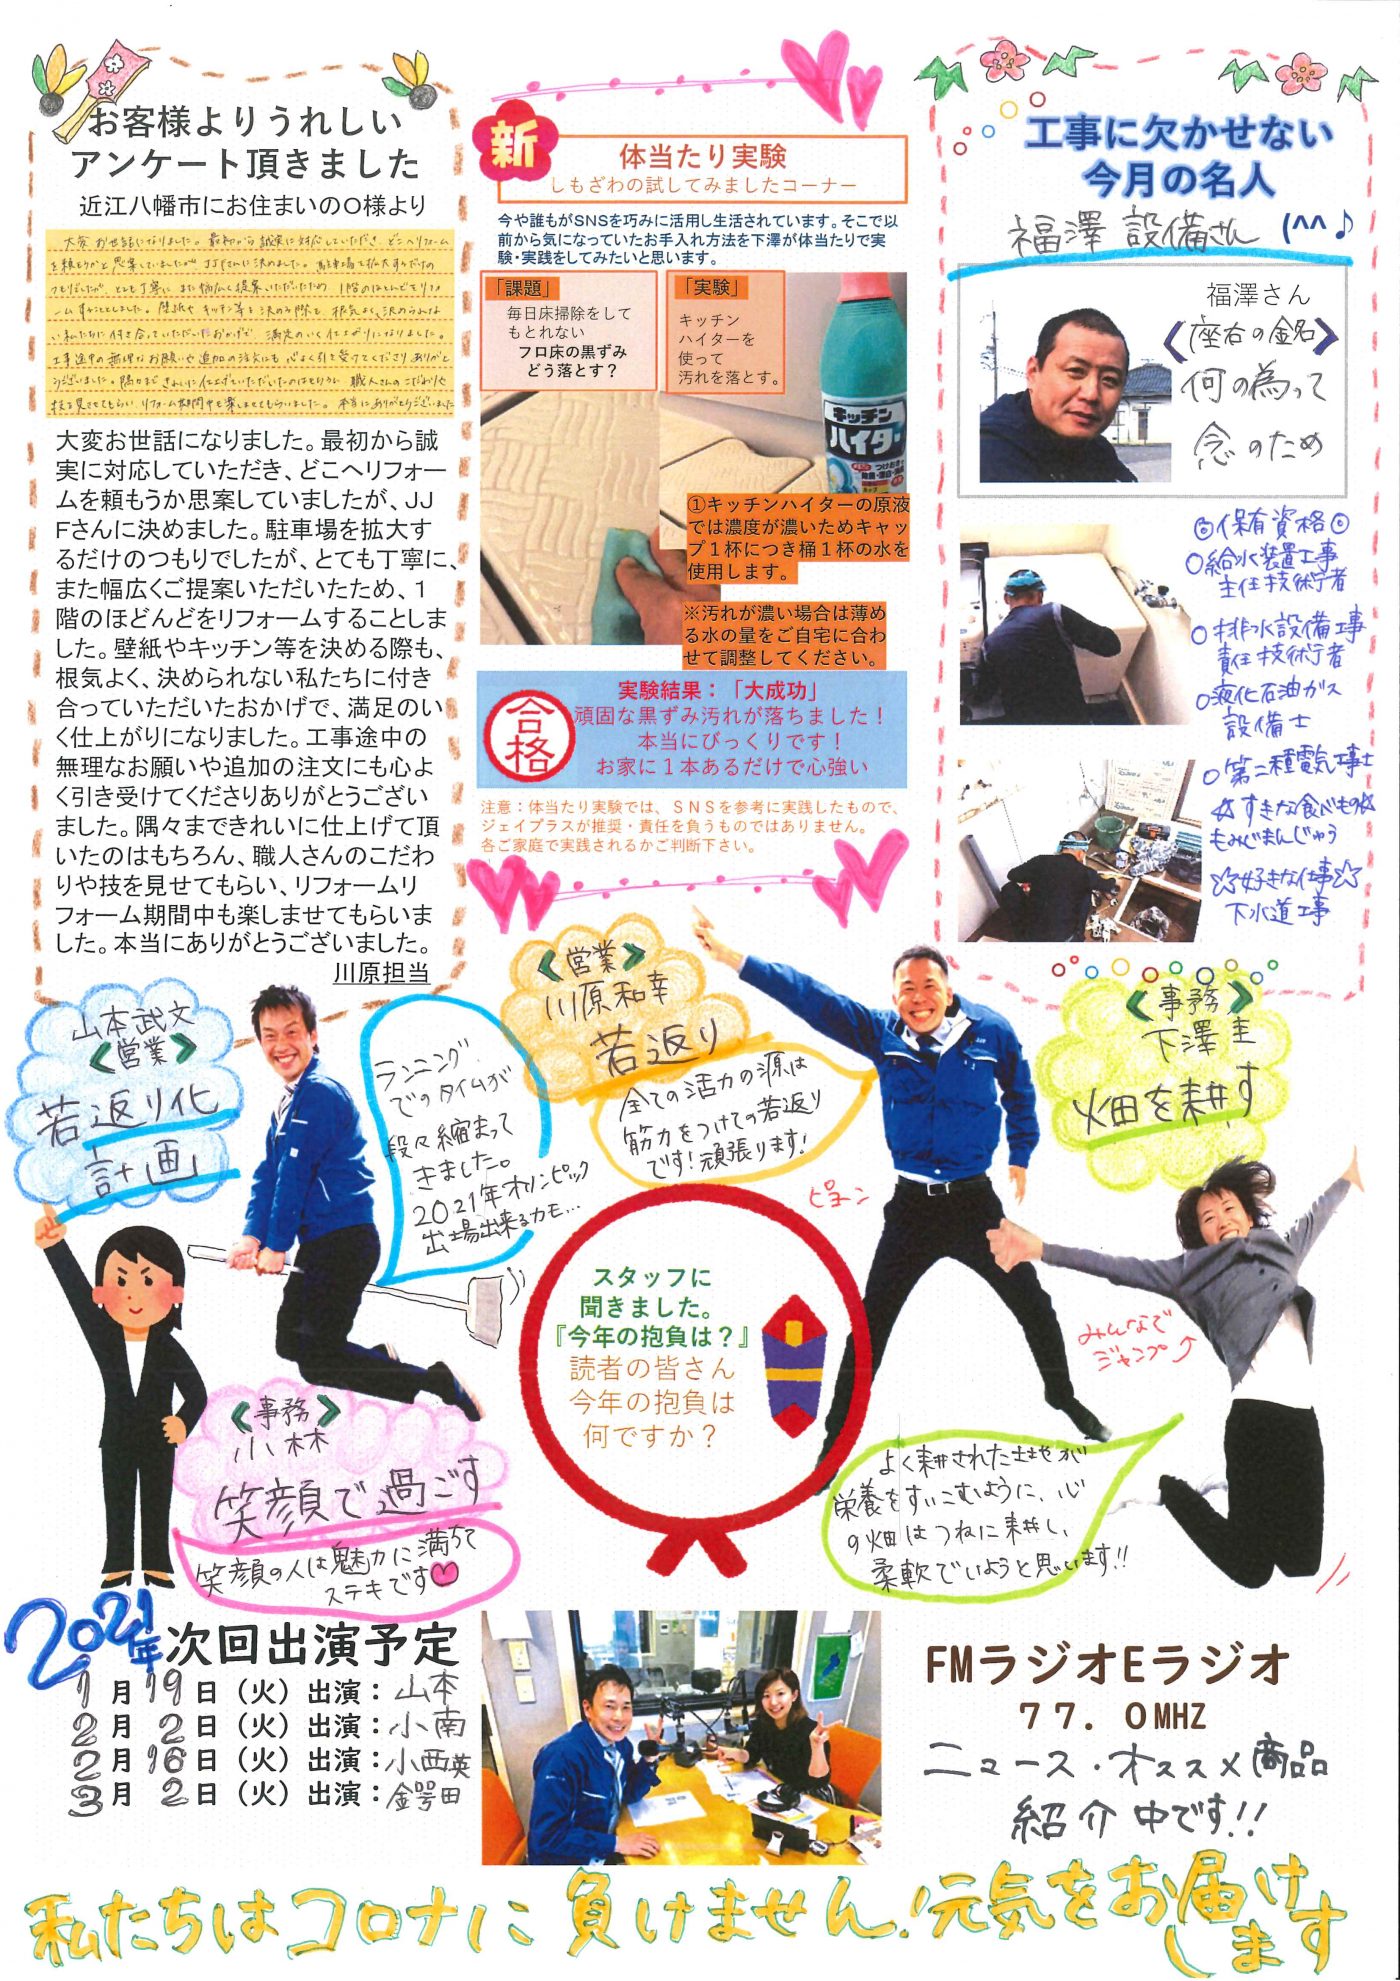 お客様よりうれしい
アンケート頂きました
近江八幡市にお住まいのO様より
大変お世話になりました。最初から誠実に対応していただき、どこへリフォーム
を頼もうかと思案していましたがJJFさんに決めました。駐車場を拡大するだけの
つもりだったが、とても丁寧に、また幅広く提案いただいたため、1階のほとんどをリフォ
ームすることにしました。壁紙やキッチン等を決める際も、根気よく、決められな
い私たちに付き合っていただいたおかげで、満足のいく仕上がりになりました。
工事途中の無理なお願いや追加の注文にも心よく引き受けてくださりありがと
うございました。隅々まできれいに仕上げていただいたのはもちろん、職人さんのこだわりや
技を見させてもらい、リフォーム期間中も楽しませてもらいました。本当にありがとうございました
大変お世話になりました。最初から誠
実に対応していただき、どこへリフォー
ムを頼もうか思案していましたが、JJ
Fさんに決めました。駐車場を拡大す
るだけのつもりでしたが、とても丁寧に、
また幅広くご提案いただいたため、1
階のほどんどをリフォームすることしま
した。壁紙やキッチン等を決める際も、
根気よく、決められない私たちに付き
合っていただいたおかげで、満足のい
く仕上がりになりました。工事途中の
無理なお願いや追加の注文にも心よ
く引き受けてくださりありがとうござい
ました。隅々まできれいに仕上げて頂
いたのはもちろん、職人さんのこだわ
りや技を見せてもらい、リフォームリ
フォーム期間中も楽しませてもらいま
した。本当にありがとうございました。
川原担当
新
体当たり実験
しもざわの試してみましたコーナー
今や誰もがSNSを巧みに活用し生活されています。そこで以
前から気になっていたお手入れ方法を下澤が体当たりで実
験・実践をしてみたいと思います。
「課題」
毎日床掃除をして
もとれない
フロ床の黒ずみ
どう落とす？
「実験」
キッチン
ハイターを
使って
汚れを落とす。
キッチン
ハイター
①キッチンハイターの原液
では濃度が濃いためキャッ
プ1杯につき桶1杯の水を
使用します。
※汚れが濃い場合は薄め
る水の量をご自宅に合わ
せて調整してください。
合格
実験結果：「大成功」
頑固な黒ずみ汚れが落ちました！
本当にびっくりです！
お家に1本あるだけで心強い
注意：体当たり実験では、SNSを参考に実践したもので、
ジェイプラスが推奨・責任を負うものではありません。
各ご家庭で実践されるかご判断下さい。
工事に欠かせない
今月の名人
福澤 設備さん (^^♪
福澤さん
《座右の銘》
何の為って
念のため
◎保有資格◎
○給水装置工事
主任技術者
○排水設備工事
責任技術者
○液化石油ガス
設備士
○第二種電気工事士
☆すきな食べもの☆
もみじまんじゅう
☆好きな仕事☆
下水道工事
山本武文
《営業》
若返り化
計画
ランニング
でのタイムが
段々縮まって
きました。
2021年オリンピック
出場出来るカモ…
《営業》
川原和幸
若返り
全ての活力の源は
筋力をつけての若返り
です！頑張ります！
ピョーン
《事務》
下澤圭
畑を耕す
みんなで
ジャンプ
よく耕された土地が
栄養をすいこむように、心
の畑はつねに耕し、
柔軟でいようと思います!!
スタッフに
聞きました。
『今年の抱負は？』
読者の皆さん
今年の抱負は
何ですか？
《事務》
小林
笑顔で過ごす
笑顔の人は魅力に満ちて
ステキです♥
2021年 次回出演予定
1月19日（火）出演：山本
2月 2日（火）出演：小南
2月16日（火）出演：小西英
3月 2日（火）出演：金咢田
FMラジオEラジオ
77．0MHZ
ニュース・オススメ商品
紹介中です!!
私たちはコロナに負けません！元気をお届けします